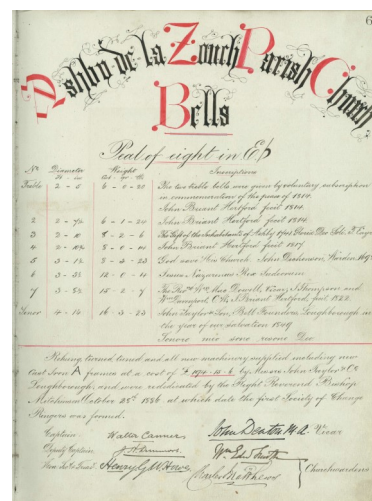 6
Ashby de la Zouch Parish Church
Bells
Peal of eight in E♭
No. Diameter Weight Inscriptions
Treble 2 - 5 6 - 0 - 20 The two treble bells were given by voluntary subscription
in commemoration of the peace of 1814.
John Briant Hertford fecit 1814.
2 6 - 1 - 24 John Briant Hertford fecit 1814
3 2 - 10 8 - 2 - 6 The Gift of the Inhabitants of Ashby
4 8 - 0 - John Briant Hertford fecit 1807
5 3 - 1½ 8 - 3 - 23 God save His Church. John Warden
6 3 - 12 - 0 - Jesus Nazarenus Rex Judeorum
7 3 - 15 - 2 - 7 The Revd. Wm. Mac Douall, Vicar, Thompson and
Wm. C.Ws. J. Briant Hertford fecit 1822
Tenor 4 - 16 - 3 - 23 John Taylor & Son, Bell Founders Loughborough in
the year of our salvation 1849
Sonoro meo sono resono Deo
Rehung, turned, tuned and all new machinery supplied including new
Cast Iron A frames at a cost of £ by Messrs John Taylor & Co
Loughborough, and were rededicated by the Right Reverend Bishop
Mitchinson October 25th 1886 at which date the first Society of Change
Ringers was formed.
Captain Walter Canners John Denton M.A. Vicar
Deputy Captain Wm. Smith
Hon. Sec. & Treasr. Henry G. W. Howe Churchwardens